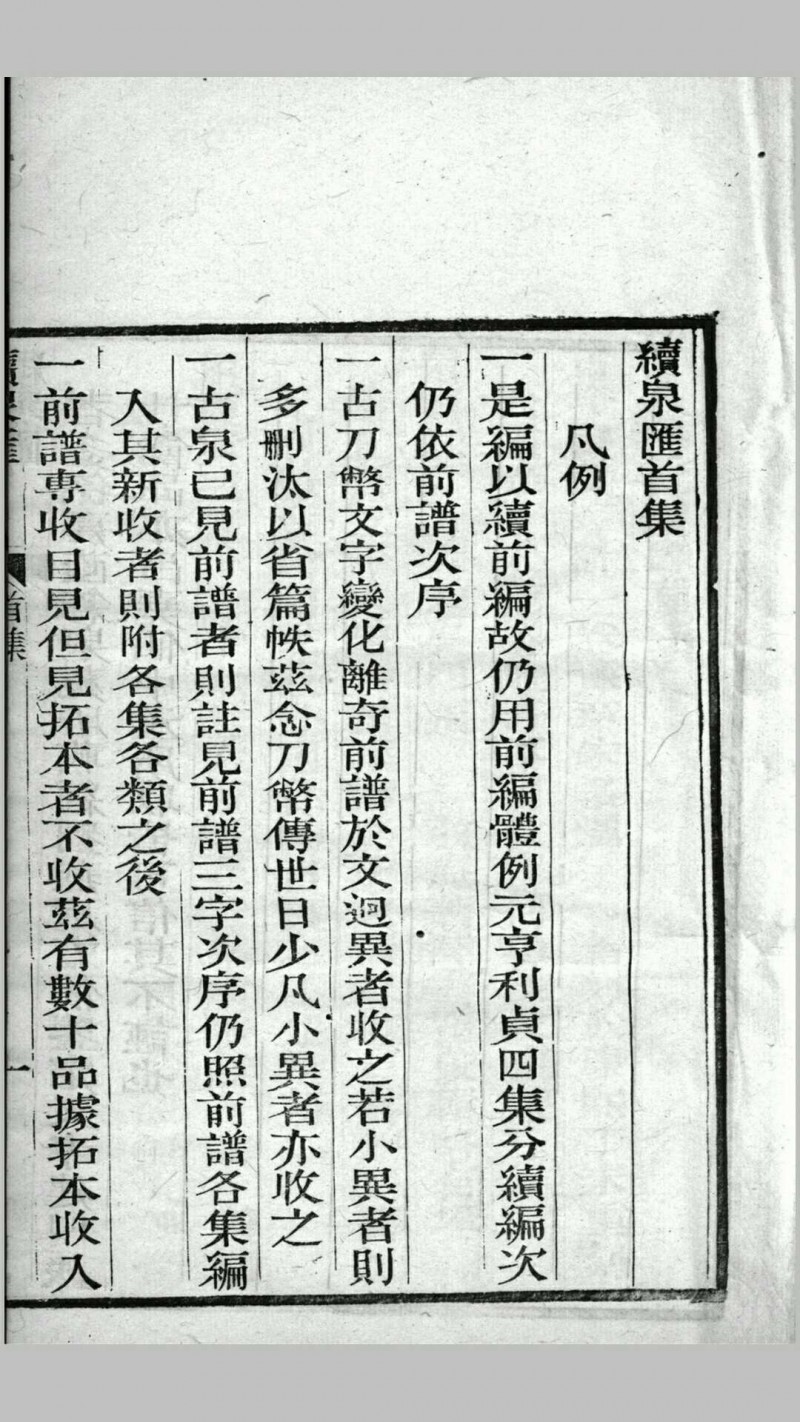 續泉匯首集
凡例
一是編以續前編故仍用前編體例元亨利貞四集分續編次
仍依前譜次序
一古刀幣文字變化離奇前譜於文迥異者收之若小異者則
多刪汰以省篇帙茲念刀幣傳世日少凡小異者亦收之
一古泉已見前譜者則註見前譜三字次序仍照前譜各集編
入其新收者則附各集各類之後
一前譜專收目見但見拓本者不收茲有數十品據拓本收入
續泉匯 首集 一